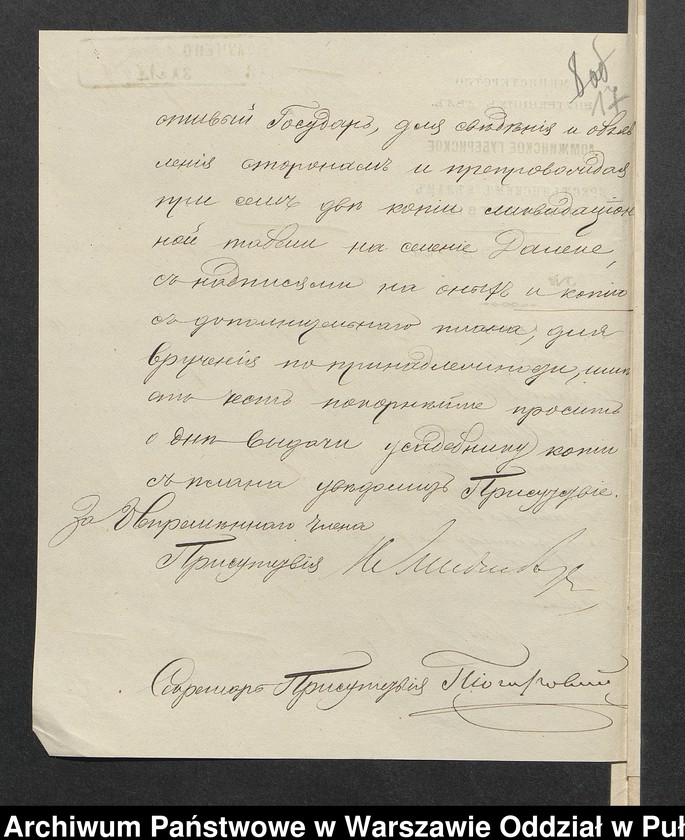 8 об
17
стивый Государь, для свѣдѣнія и объяв
ленія сторонамъ и препровождая
при семъ двѣ копіи ликвидацiон
ной табели на селеніе Далеке,
съ надписями на оныхъ и копію
съ дополнительнаго плана, для
врученія по принадлежности, имѣ
етъ честь покорнѣйше просить
о днѣ выдачи усадебнику копіи
съ плана увѣдомить Присутствіе.
За Непремѣннаго Члена
Присутствія
Секретарь Присутствія
Archiwum Państwowe w Warszawie Oddział w Puł